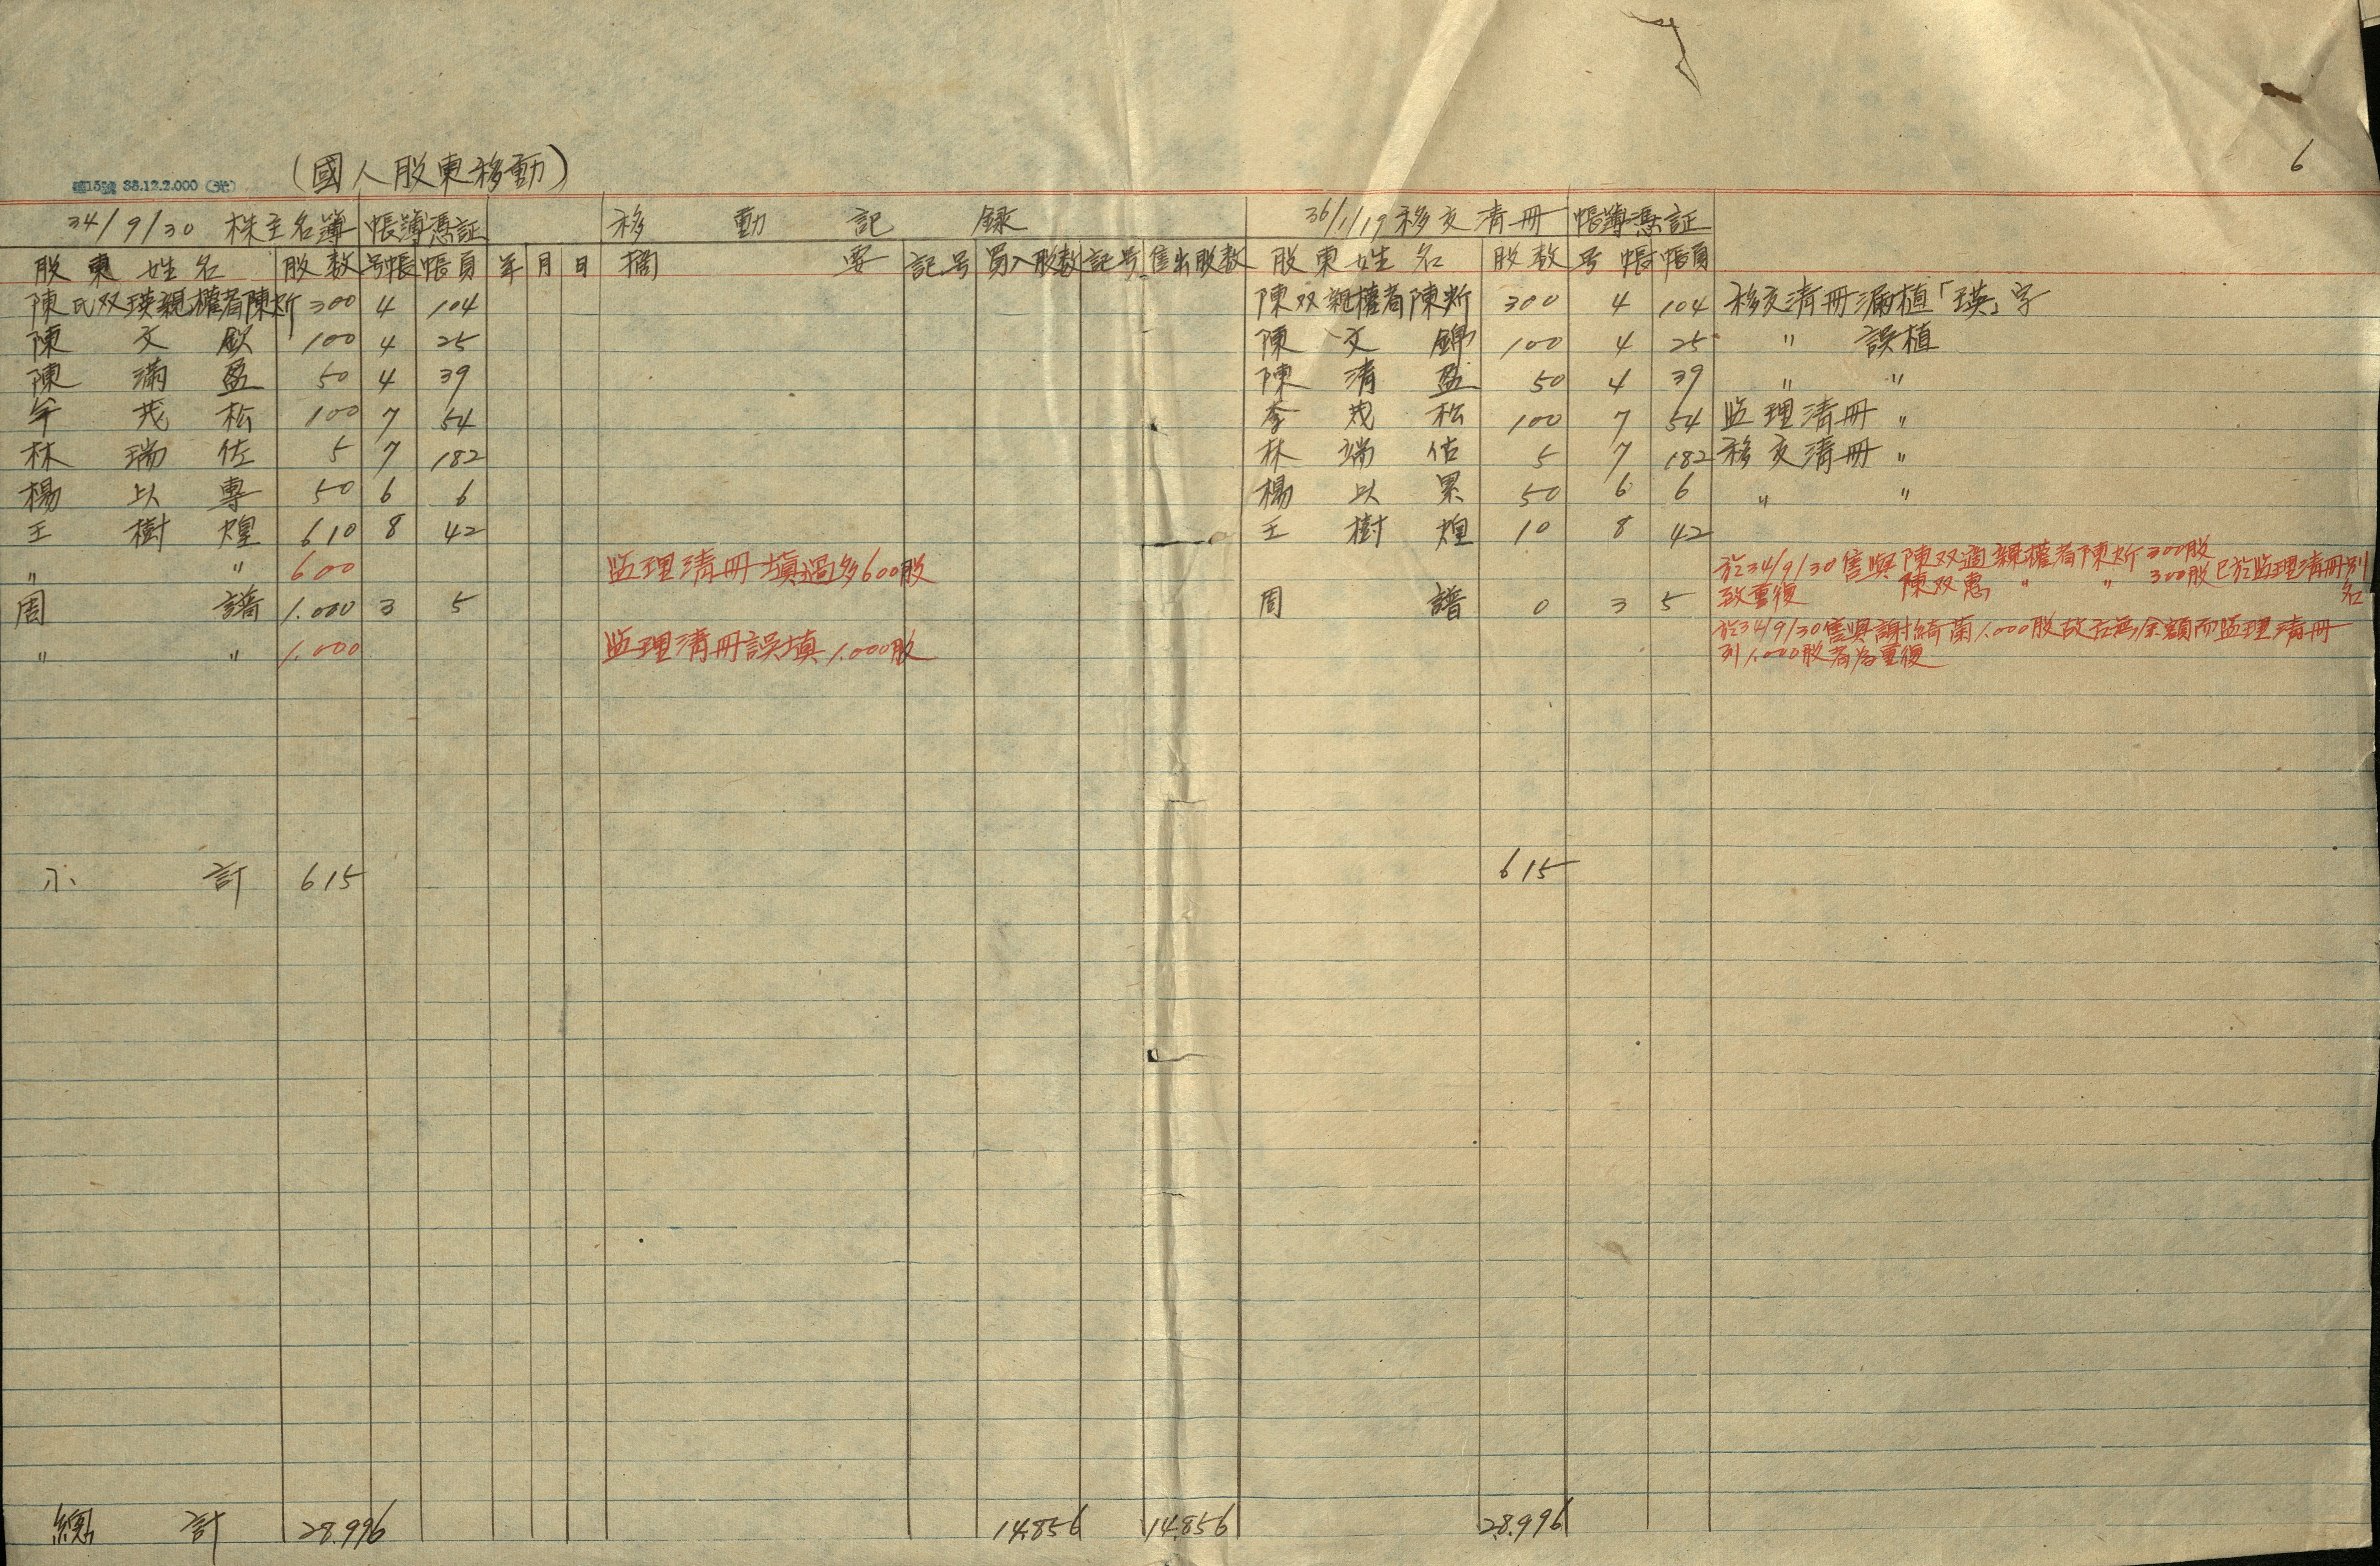 6
(國人股東移動)
34/9/30 株主名簿 帳簿憑証 移動記録 36/1/19 移交清冊 帳簿憑証
股東姓名 股数 号帳 帳頁 年 月 日 摘要 記号 買入股数 記号 售出股数 股東姓名 股数 号帳 帳頁
陳氏双瑛親權者陳炘 300 4 104 陳双親權者陳炘 300 4 104 移交清冊漏植「瑛」字
陳文欽 100 4 25 陳文錦 100 4 25 〃 誤植
陳満盈 50 4 39 陳清盈 50 4 39 〃 〃
牟茂松 100 7 54 李茂松 100 7 54 监理清冊 〃
林瑞佐 5 7 182 林端佑 5 7 182 移交清冊 〃
楊以專 50 6 6 楊以累 50 6 6 〃 〃
王樹煌 610 8 42 王樹煌 10 8 42
〃 〃 600 监理清冊填過多600股 於34/9/30售與陳双適親權者陳炘300股
陳双惠 〃 〃 300股已於监理清冊列名
致重復
周譜 1.000 3 5 周譜 0 3 5
〃 〃 1.000 监理清冊誤填1.000股 於34/9/30售與謝綺蘭1.000股故無余額而监理清冊
列1.000股者為重復
小計 615 615
總計 28.996 14.856 14.856 28.996